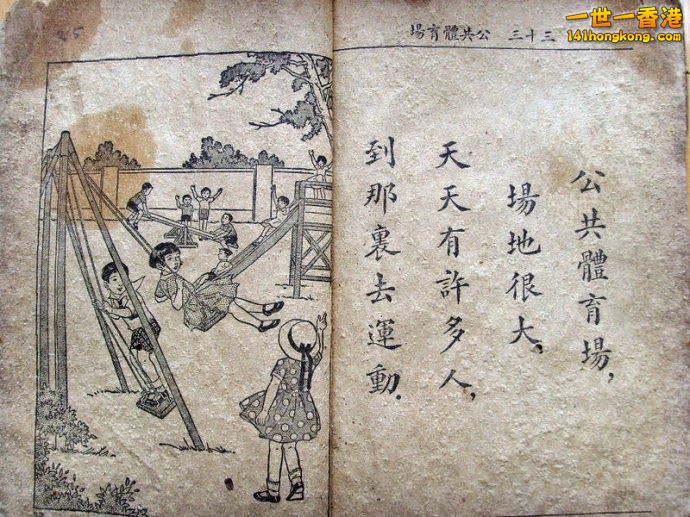 一世一香港
141hongkong.com
三十三 公共體育場
公共體育場，
場地很大，
天天有許多人，
到那裏去運動．